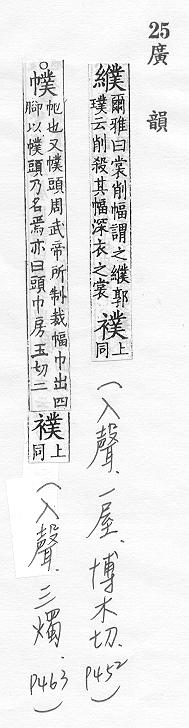 25 廣韻
纀爾雅曰裳削幅謂之纀郭璞云削殺其幅深衣之裳 襆上同 (入聲.一屋.博木切.P452)
○幞帊也又幞頭周武帝所制裁幅巾出四腳以幞頭乃名焉亦曰頭巾房玉切二 襆上同 (入聲.三燭.P463)